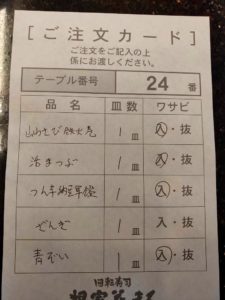 [ご注文カード]
ご注文をご記入の上
係にお渡しください。
テーブル番号 24 番
品名 皿数 ワサビ
山わさび鉄火巻 1皿 入・抜
活まつぶ 1皿 入・抜
つん辛納豆軍艦 1皿 入・抜
でんぎ 1皿 入・抜
青そい 1皿 入・抜
回転寿司
根室花まる